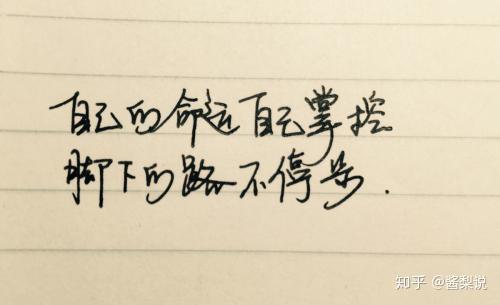 自己的命运自己掌控
脚下的路不停朵.
知乎 @酱梨说